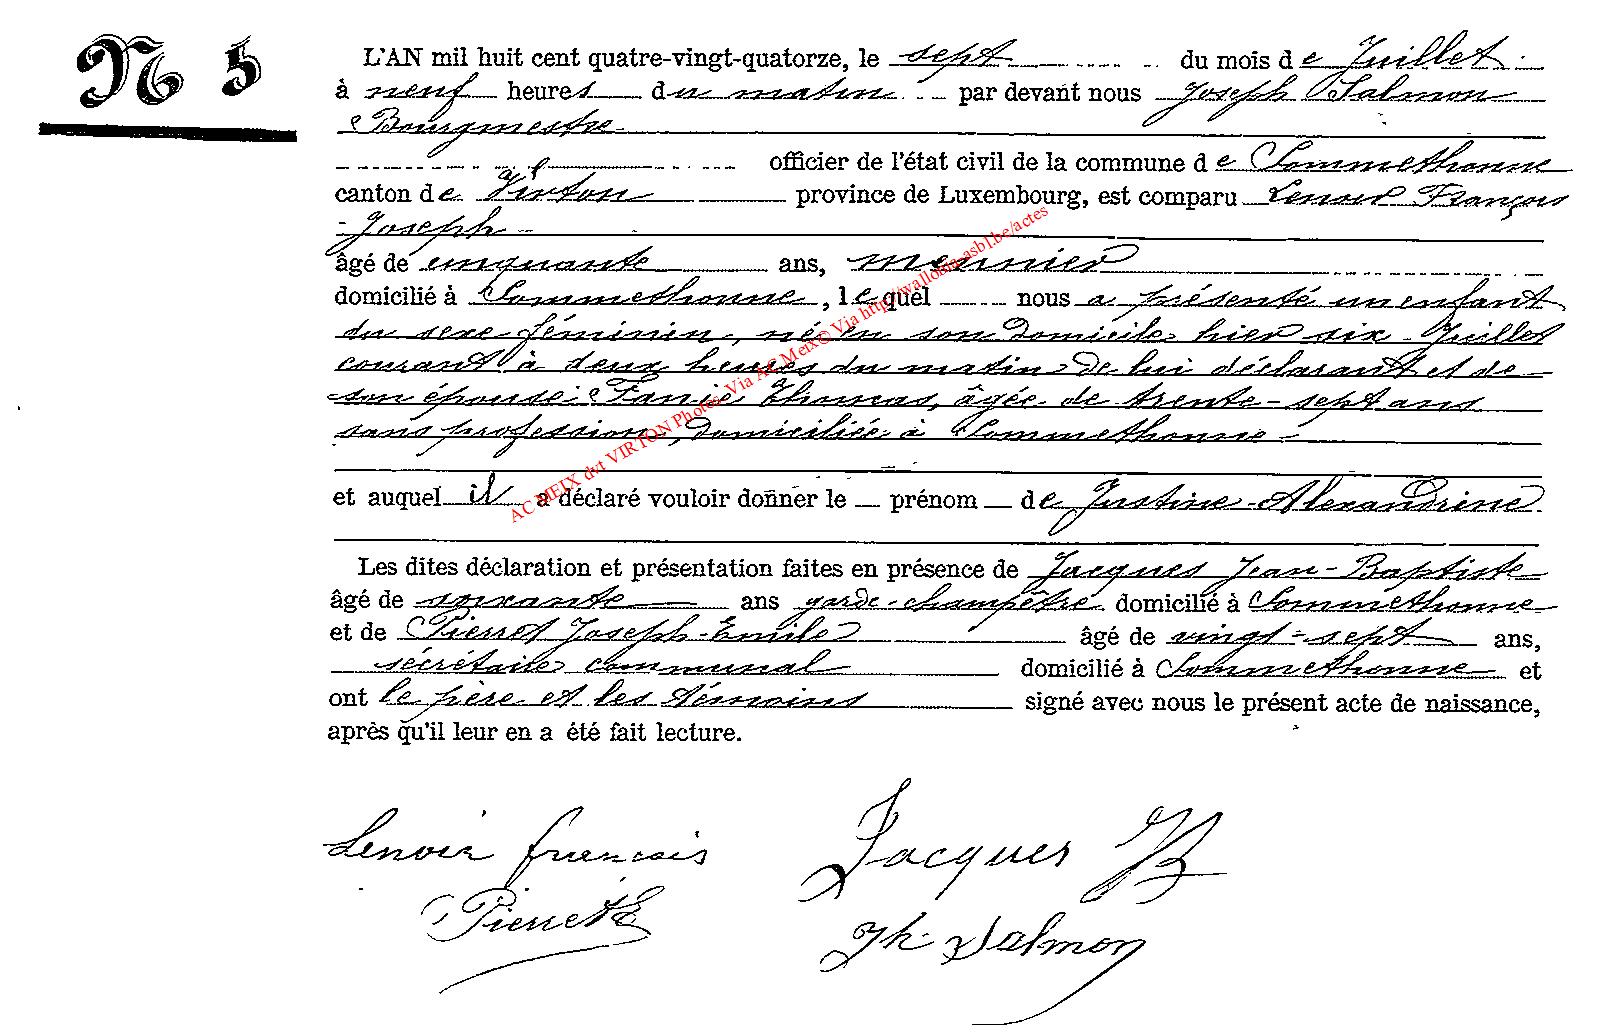 N° 5
L'AN mil huit cent quatre-vingt-quatorze, le sept du mois de Juillet
à neuf heures du matin par devant nous Joseph Salmon
Bourgmestre
officier de l'état civil de la commune de Sommethonne
canton de Virton province de Luxembourg, est comparu Lenoir François
Joseph
âgé de cinquante ans, meunier
domicilié à Sommethonne, lequel nous a présenté un enfant
du sexe féminin, né en son domicile hier six Juillet
courant à deux heures du matin de lui déclarant et de
son épouse Fanie Thomas, âgée de trente-sept ans
sans profession, domiciliée à Sommethonne
et auquel il a déclaré vouloir donner le prénom de Justine-Alexandrine
Les dites déclaration et présentation faites en présence de Jacques Jean-Baptiste
âgé de soixante ans garde-champêtre domicilié à Sommethonne
et de Pierret Joseph-Emile âgé de vingt-sept ans,
sécrétaire communal domicilié à Sommethonne et
ont le père et les témoins signé avec nous le présent acte de naissance,
après qu'il leur en a été fait lecture.
Lenoir francois Jacques JB
Pierret E Jh Salmon
AC MEIX dvt VIRTON Photos Via AC Meix© Via http://wallonia-asbl.be/actes